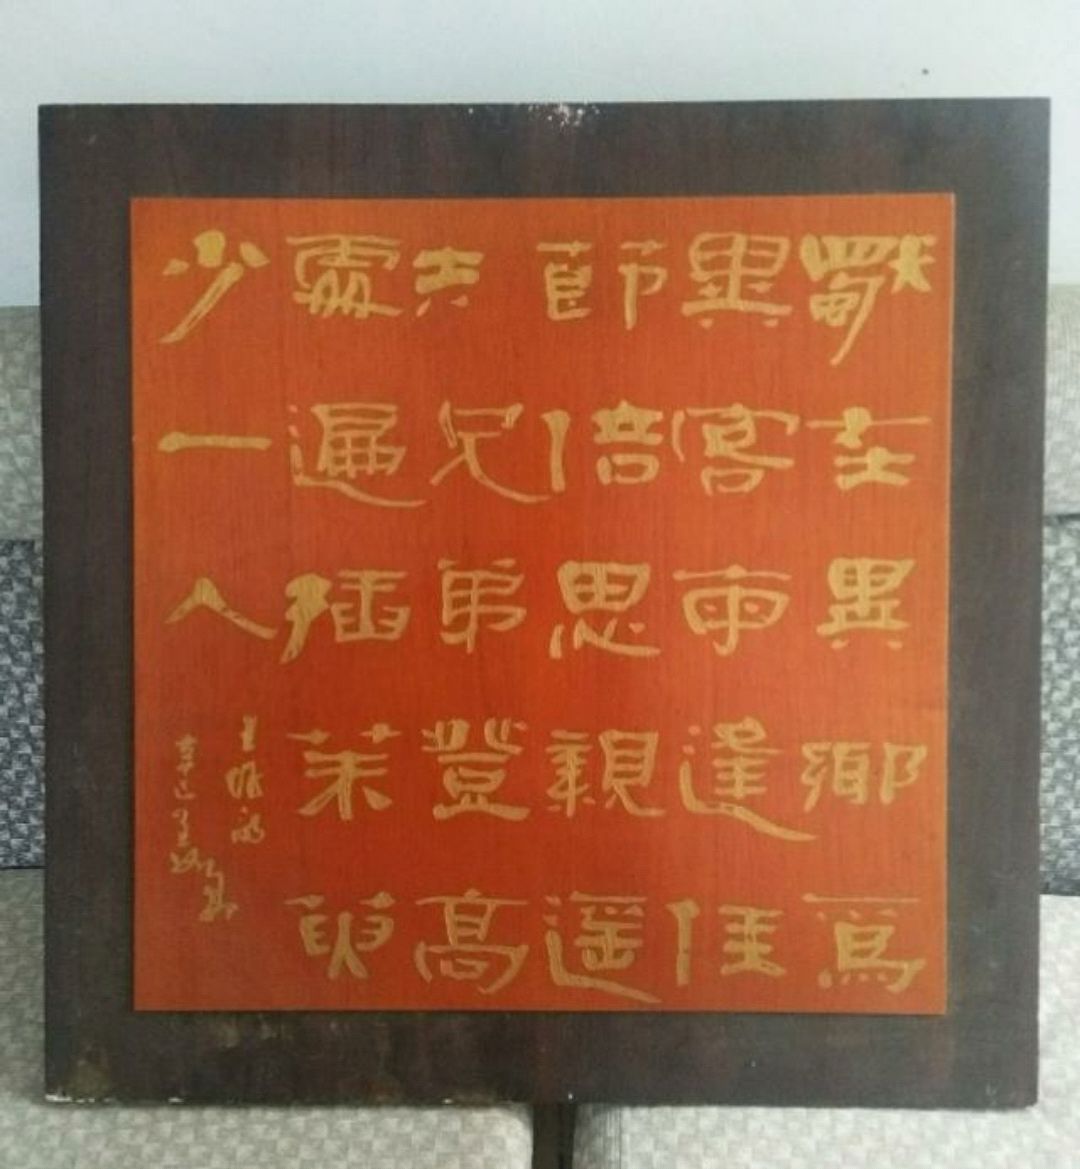 獨在異鄉為
異客每逢佳
節倍思親遥
兄弟登高
處遍插茱萸
少一人
王維詩